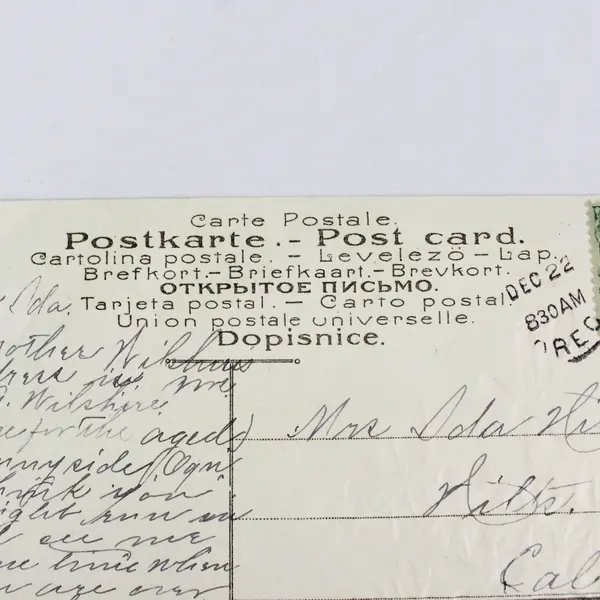 Carte Postale.
Postkarte. - Post card.
Cartolina postale. - Levelezö - Lap.
Brefkort. - Briefkaart. - Brevkort.
ОТКРЫТОЕ ПИСЬМО.
Tarjeta postal. - Carto postal.
Union postale universelle.
Dopisnice.
DEC 22
830AM
REC
Ida.
Mother Wilshire
me
Wilshire
for the aged)
nnyside Ogn
think you
ight run in
see me
time when
are over
Mrs Ida Hi
Hilt.
Cal